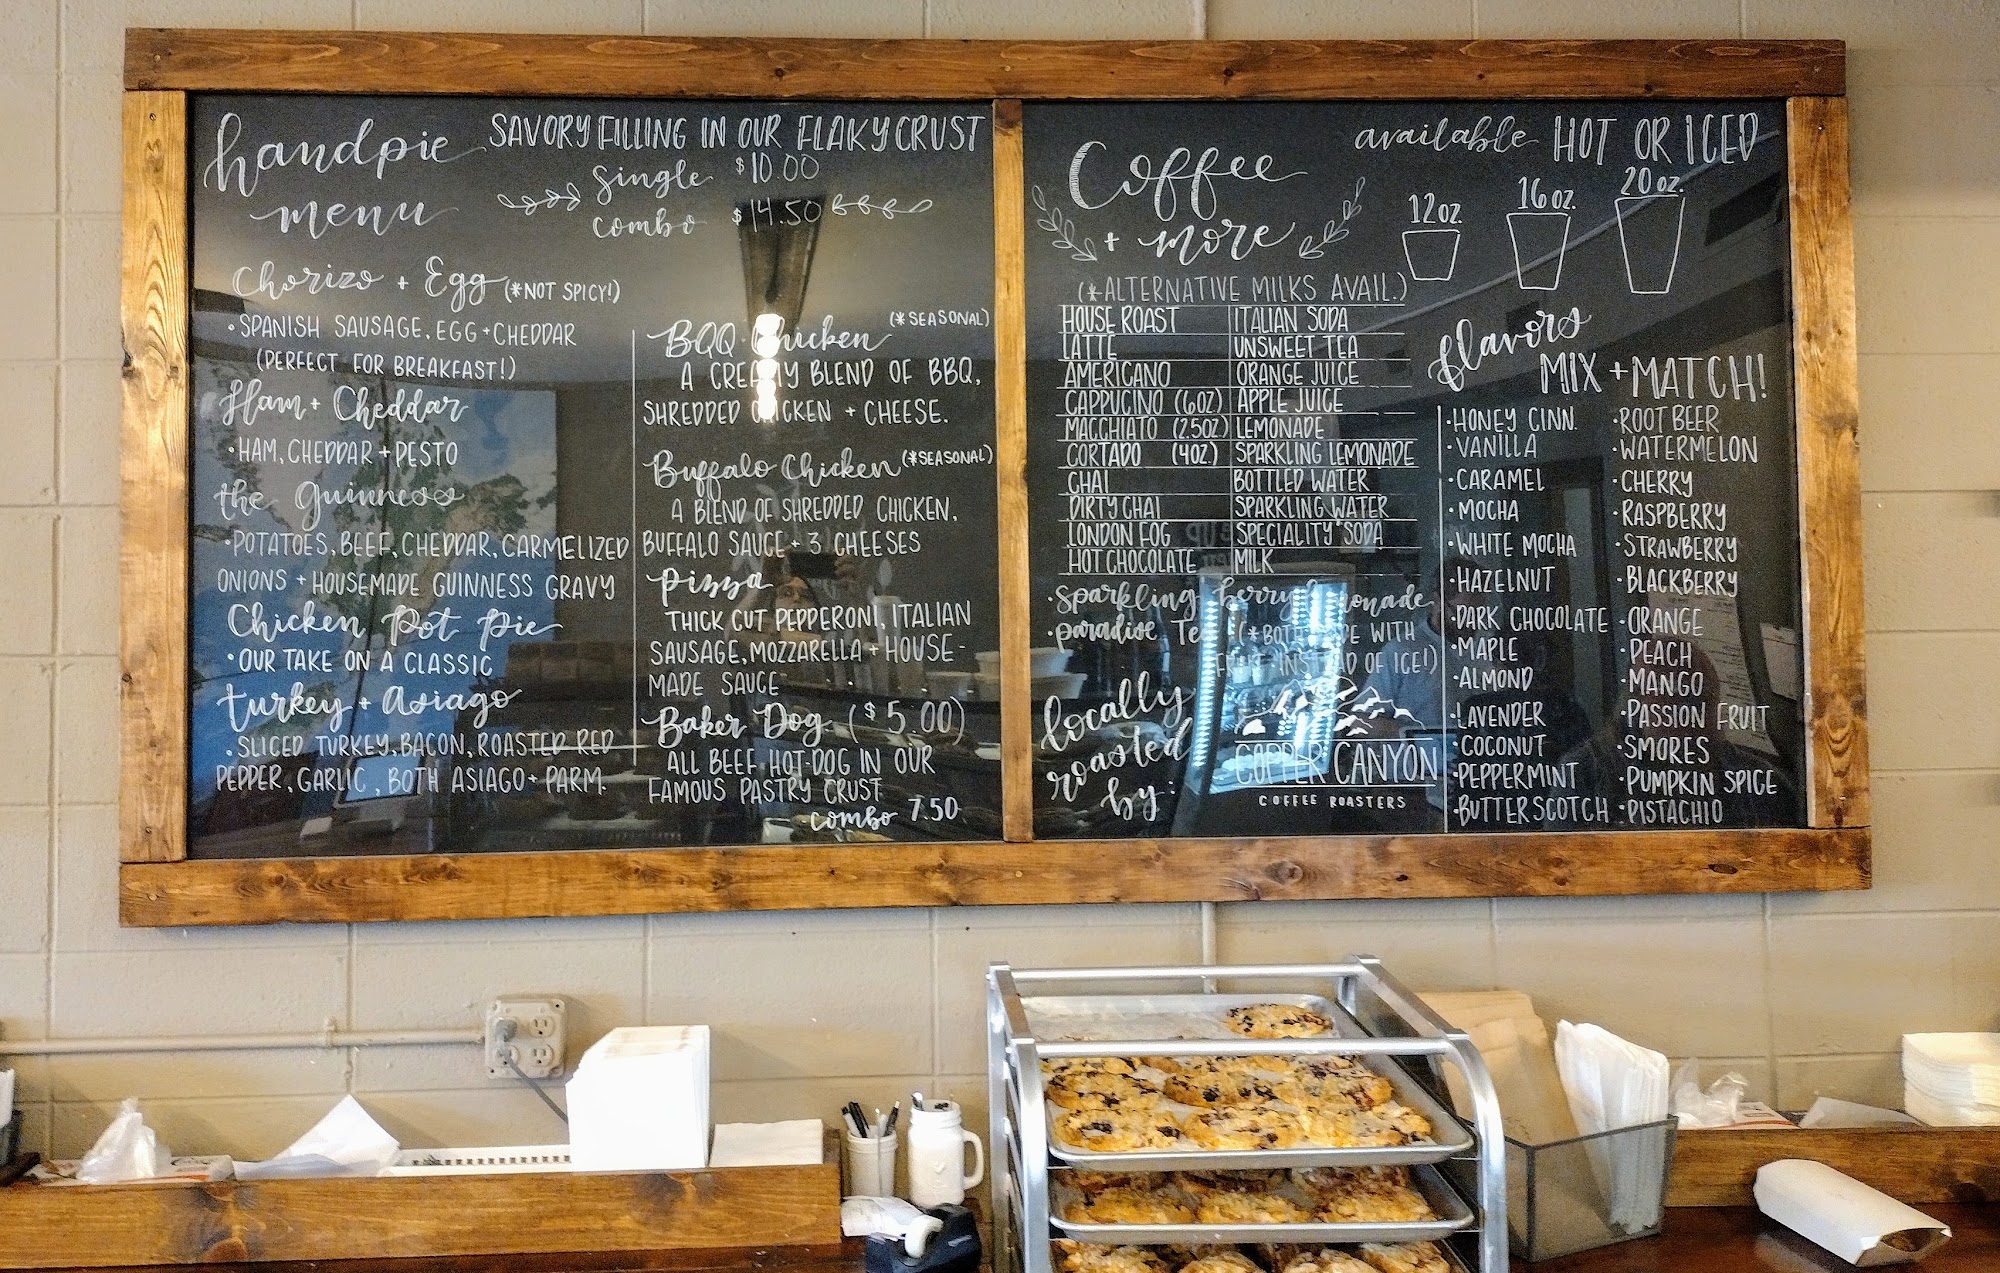 handpie
menu
SAVORY FILLING IN OUR FLAKY CRUST
single $10.00
combo $14.50
Chorizo + Egg (*NOT SPICY!)
•SPANISH SAUSAGE, EGG + CHEDDAR
(PERFECT FOR BREAKFAST!)
Ham + Cheddar
•HAM, CHEDDAR + PESTO
the Guinness
•POTATOES, BEEF, CHEDDAR, CARMELIZED
ONIONS + HOUSEMADE GUINNESS GRAVY
Chicken Pot Pie
•OUR TAKE ON A CLASSIC
turkey + Asiago
•SLICED TURKEY, BACON, ROASTED RED
PEPPER, GARLIC, BOTH ASIAGO + PARM.
BQQ Chicken (*SEASONAL)
A CREAMY BLEND OF BBQ,
SHREDDED CHICKEN + CHEESE.
Buffalo Chicken (*SEASONAL)
A BLEND OF SHREDDED CHICKEN,
BUFFALO SAUCE + 3 CHEESES
pizza
THICK CUT PEPPERONI, ITALIAN
SAUSAGE, MOZZARELLA + HOUSE-
MADE SAUCE
Baker Dog ($5.00)
ALL BEEF HOT-DOG IN OUR
FAMOUS PASTRY CRUST
combo 7.50
Coffee
+ more
available HOT OR ICED
12 oz. 16 oz. 20 oz.
(*ALTERNATIVE MILKS AVAIL.)
HOUSE ROAST ITALIAN SODA
LATTE UNSWEET TEA
AMERICANO ORANGE JUICE
CAPPUCINO (6OZ) APPLE JUICE
MACCHIATO (2.5OZ) LEMONADE
CORTADO (4OZ.) SPARKLING LEMONADE
CHAI BOTTLED WATER
DIRTY CHAI SPARKLING WATER
LONDON FOG SPECIALITY SODA
HOT CHOCOLATE MILK
•sparkling berry lemonade
•paradise Tea (*BOTH MADE WITH
FRUIT INSTEAD OF ICE!)
locally
roasted
by:
COPPER CANYON
COFFEE ROASTERS
flavors
MIX + MATCH!
•HONEY CINN. •ROOT BEER
•VANILLA •WATERMELON
•CARAMEL •CHERRY
•MOCHA •RASPBERRY
•WHITE MOCHA •STRAWBERRY
•HAZELNUT •BLACKBERRY
•DARK CHOCOLATE •ORANGE
•MAPLE •PEACH
•ALMOND •MANGO
•LAVENDER •PASSION FRUIT
•COCONUT •SMORES
•PEPPERMINT •PUMPKIN SPICE
•BUTTERSCOTCH •PISTACHIO